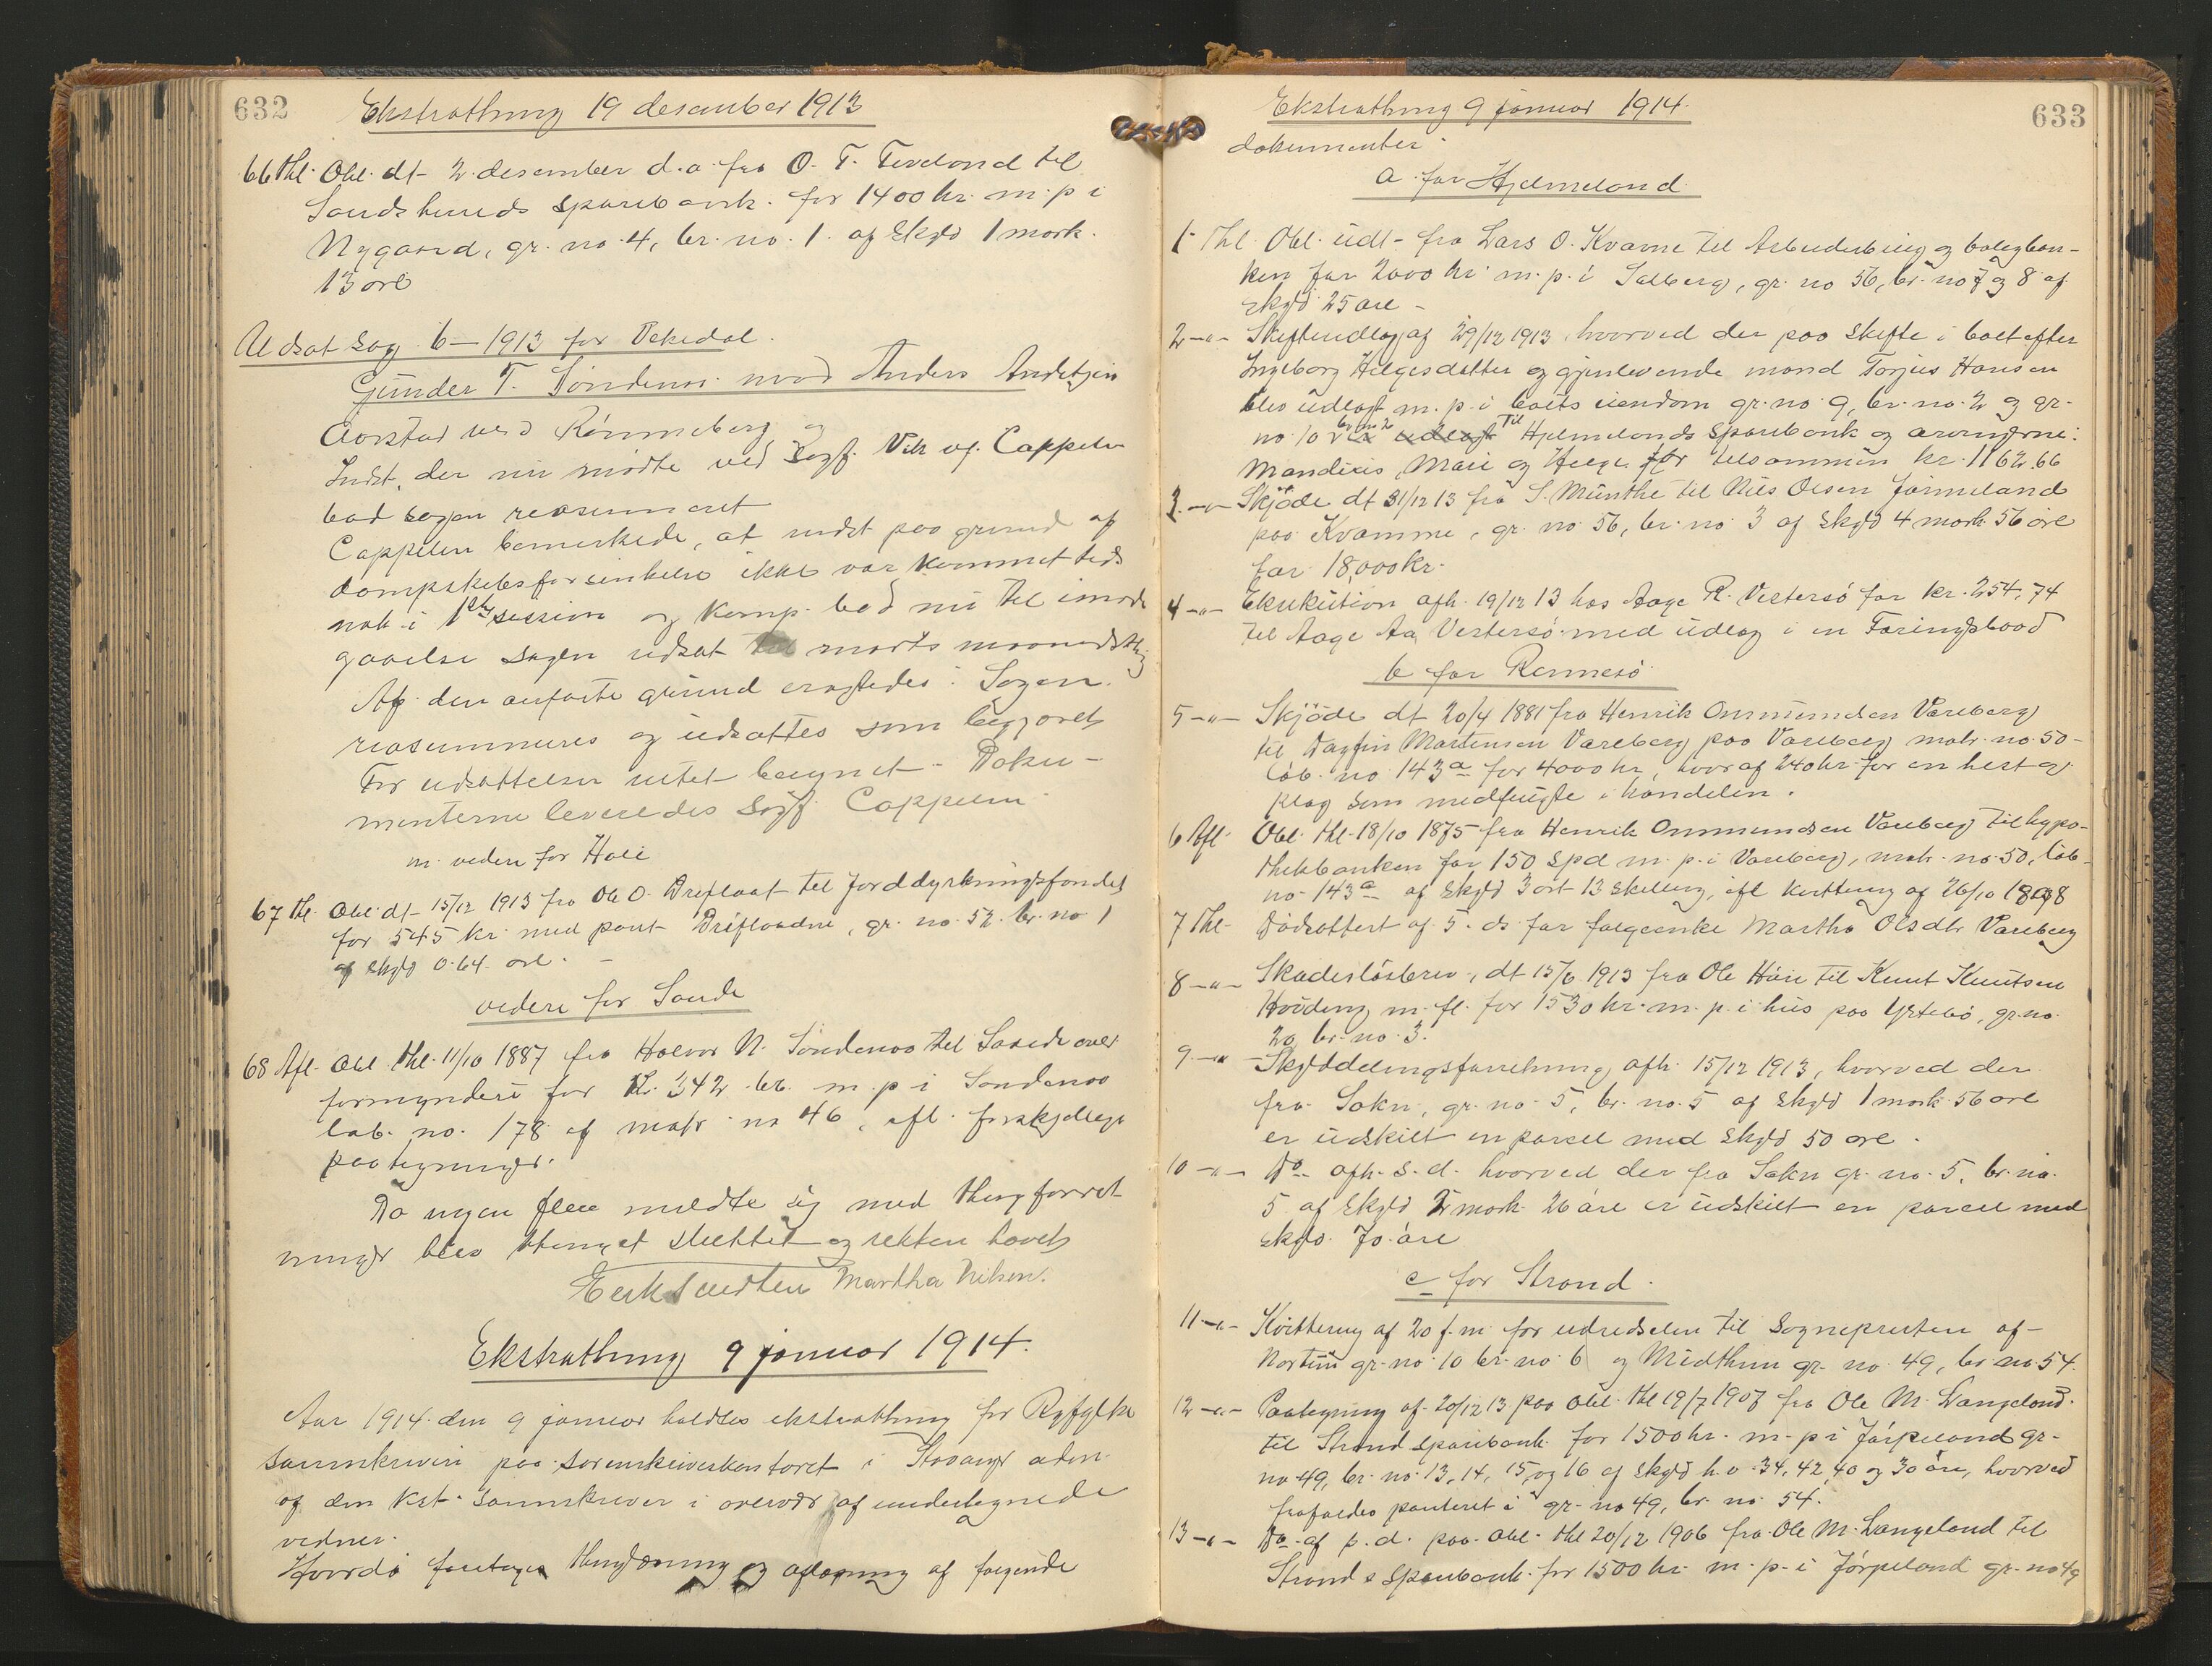 632 Ekstrathing 19 desember 1913
66 thl. Obl. dt. 2. desember d.a. fra O. T. Tveland til
Sandsherreds sparebank for 1400 kr. m. p. i
Nygaard, gr. no. 4, br. no. 1. af skyld 1 mark
13 øre
Udsat sag 6 - 1913 for Vikedal.
Gunder T. Søndenaa mod Anders Andersen
Aarstad ved Rønneberg og
Indst. der nu mødte ved Sagf. Vik og Cappelen
bad sagen reasumeret
Cappelen bemerkede, at indst paa grund af
dampskibsforsinkelse ikke var kommet tids
nok i 1ste session og komp. bad nu til imøde
gaaelse sagen udsat til marts maanedsthg
Af den anførte grund eragtedes: Sagen
reasummeres og udsættes som begjæret
For udsættelsen intet beregnet - Doku-
menterne leveredes Sagf. Cappelen
videre for Hole
67 thl. Obl. dt. 15/12 1913 fra Ole O. Dreflaat til Jorddyrkningsfondet
for 545 kr. med pant Dreflaadne, gr. no. 52. br. no 1
af skyld 0.64 øre.
videre for Sande
68 Afl. Obl. thl. 11/10 1887 fra Halvor N. Søndenaa til Sands over
formynderi for kr. 342 m. p. i Søndenaa
løb. no. 178 af matr no 46, ifl. forskjellige
paategninger.
Da ingen flere meldte sig med thingforret
ninger blev thinget sluttet og retten hævet
Martha Nilsen.
Ekstrathing 9 januar 1914.
Aar 1914 den 9 januar holdtes ekstrathing for Ryfylke
sorenskriveri paa sorenskriverkontoret i Stavanger adm.
af den kst. sorenskriver i overvær af undertegnede
vidner.
Hvorda foretoges thinglæsning og aflæsning af følgende
Ekstrathing 9 januar 1914. 633
dokumenter
a for Hjelmeland
1 Thl. Obl. udt. fra Lars O. Kvame til Arbeiderbrug og boligban-
ken for 2000 kr. m. p. i Solberg, gr. no 56, br. no 7 og 8 af
skyld 25 øre -
2 -"- Skifteudlæg af 29/12 1913, hvorved der paa skifte i boet efter
Ingeborg Helgesdatter og gjenlevende mand Torjus Hansen
blev udlagt m. p. i boets eiendom gr. no. 9, br. no. 2 og gr.
no. 10 br. no 2 til Hjelmelands sparebank og arvingerne:
Mandius, Mari og Helge for tilsammen kr. 1162.66
3 -"- Skjøde dt 31/12 13 fra S. Munthe til Nils Olsen Førneland
paa Kvamme, gr. no. 56, br. no 3 af skyld 4 mark 56 øre
for 18,000 kr.
4 -"- Eksekution afh. 19/12 13 hos Aage R. Vestersø for kr. 254,74
til Aage Aa. Vestersø med udlæg i en Føringsbaad
b for Rennesø
5 -"- Skjøde dt 20/4 1881 fra Henrik Ommundsen Vareberg
til Dagfin Martensen Vareberg paa Vareberg matr. no. 50 -
løb. no 143a for 4000 kr, hvoraf 240 kr for en hest og
plog som medfulgte i handelen.
6 Afl. Obl. thl. 18/10 1875 fra Henrik Ommundsen Vareberg til hypo-
thekbanken for 150 Spd m. p. i Vareberg, matr. no. 50, løb.
no. 143a af skyld 3 ort 13 skilling, ifl kvittering af 26/10 1898
7 Thl. Dødsattest af 5. ds for føgeenke Martha Olsdtr Vareberg
8 -"- Skadesløsbrev, dt 15/6 1913 fra Ole Haie til Knut Knutsen
Hovding m. fl. for 1530 kr. m. p. i hus paa Ystebø, gr. no.
20, br. no. 3.
9 -"- Skylddelingsforretning afh. 15/12 1913, hvorved der
fra Sokn, gr. no. 5, br. no. 5 af skyld 1 mark 56 øre
er udskilt en parcel med skyld 50 øre.
10 -"- Do afh. s. d. hvorved der fra Sokn gr. no. 5, br. no.
5 af skyld 2 mark 26 øre er udskilt en parcel med
skyld 70 øre
c for Strand.
11 -"- Kvittering af 20 f. m. for udredselen til sognepresten af
gr. no. 10 br. no 6 og Midthun gr. no. 49, br. no 54.
12 -"- Paategning af 20/12 13 paa obl. thl 19/7 1907 fra Ole M. Langeland
til Strand sparebank for 1500 kr. m. p. i Jørpeland gr.
no 49, br. no. 13, 14, 15, og 16 af skyld h. v. 34, 42, 40 og 30 øre, hvorved
frafaldes panteret i gr. no 49, br. no. 54.
13 -"- Do. af p. d. paa obl. thl 20/12 1906 fra Ole M. Langeland til
Strands sparebank for 1500 kr m. p. i Jørpeland gr. no 49